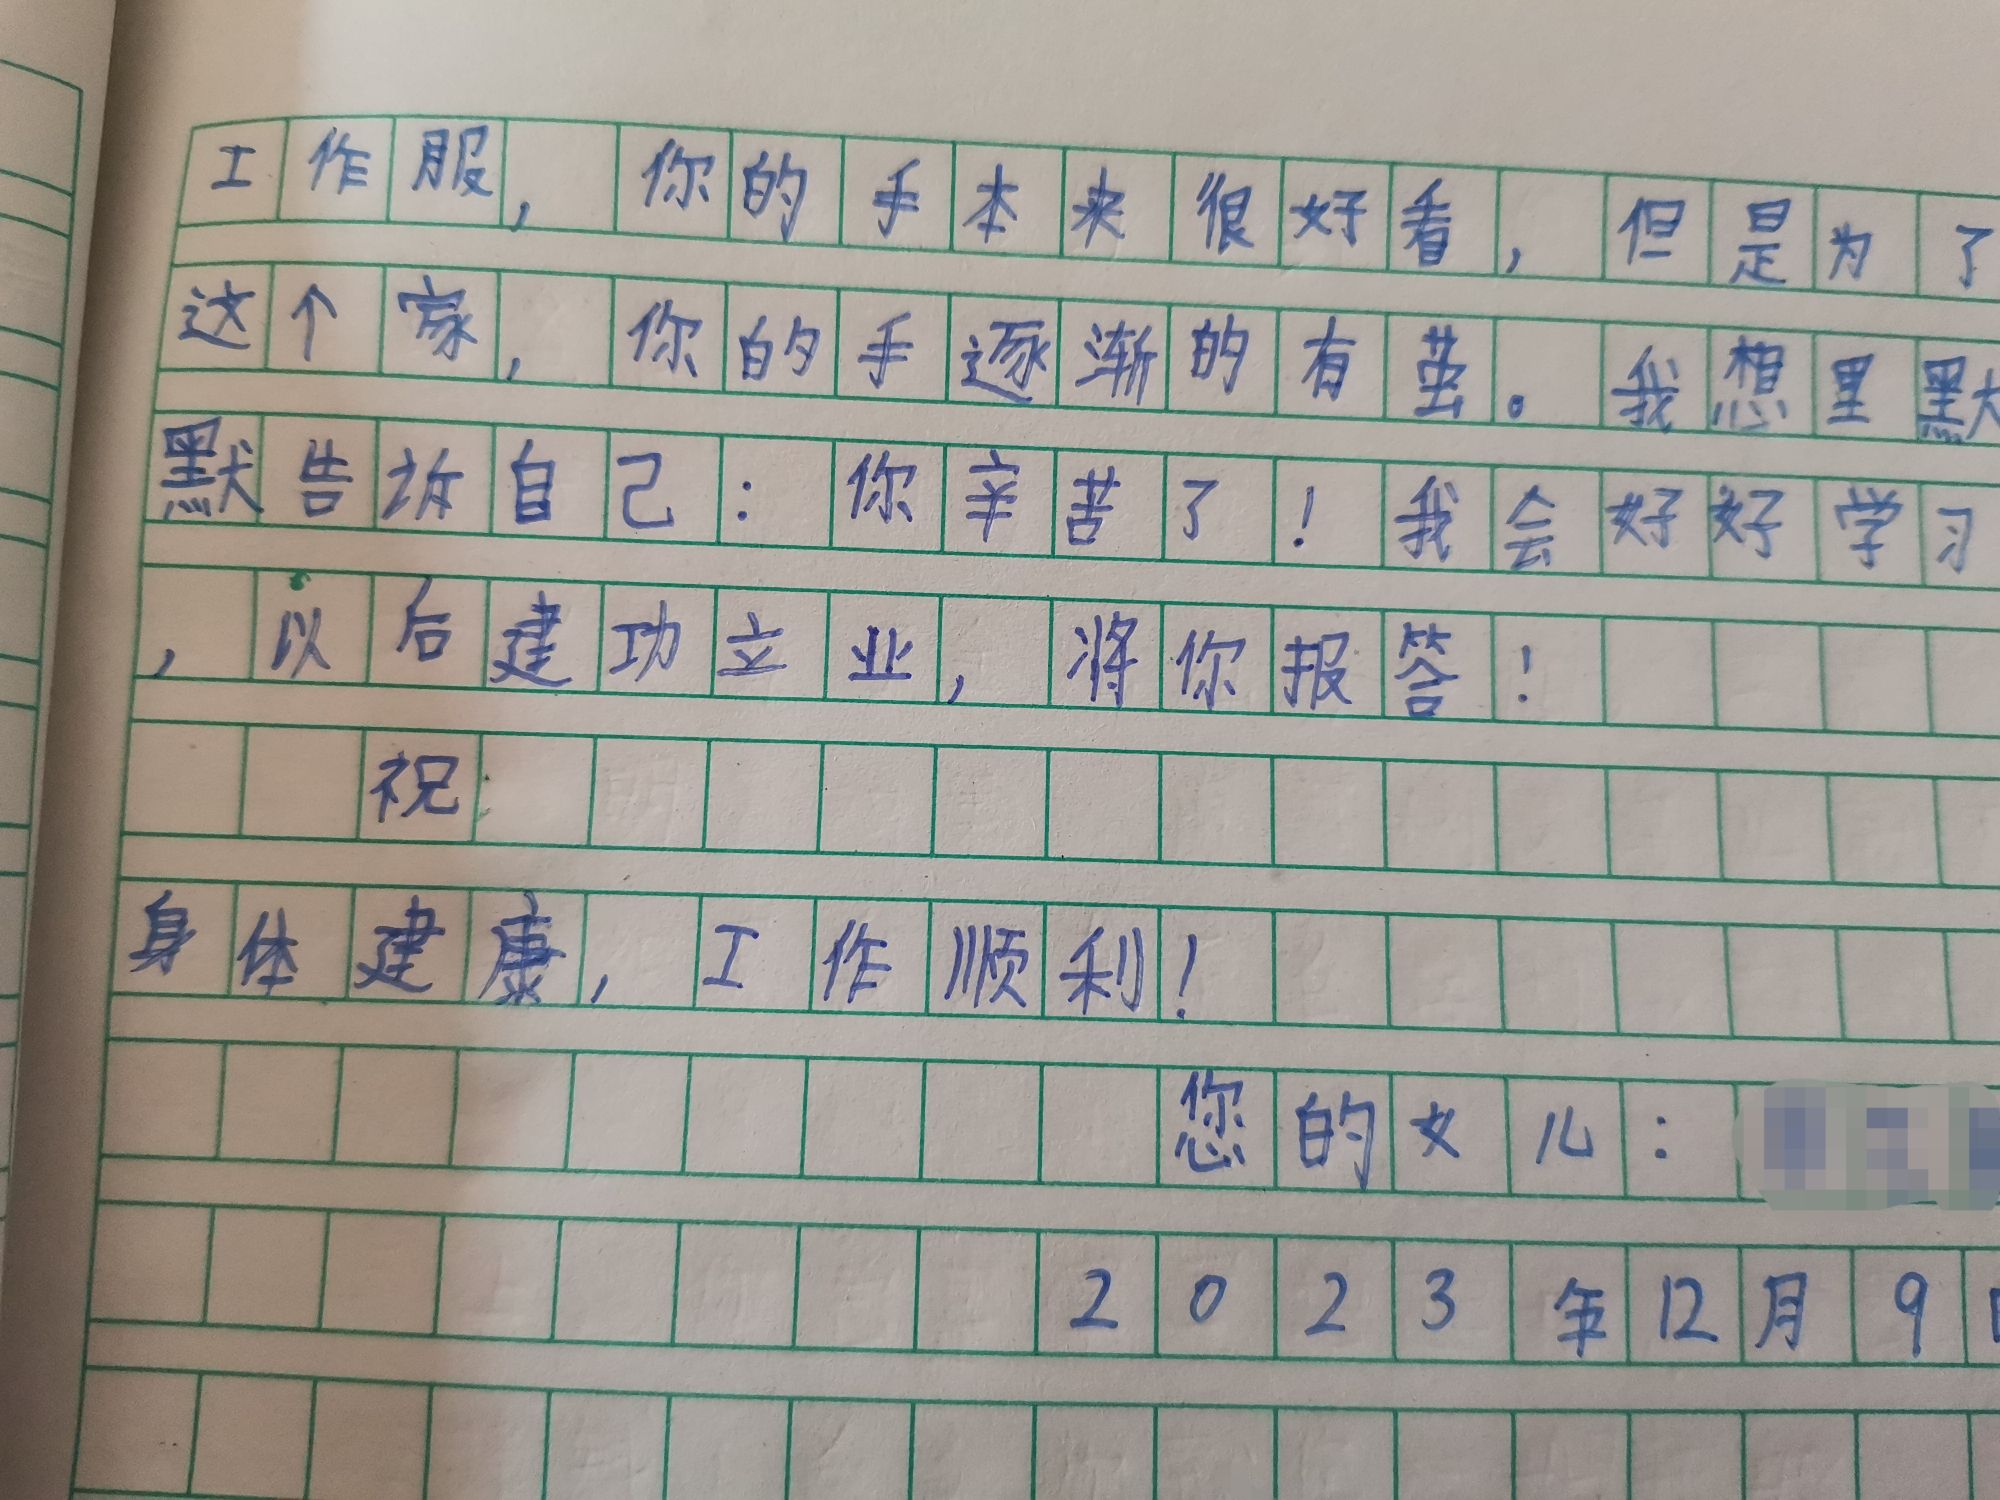 工作服，你的手本来很好看，但是为了
这个家，你的手逐渐的有茧。我想里默
默告诉自己：你辛苦了！我会好好学习
，以后建功立业，将你报答！
祝
身体建康，工作顺利！
您的女儿：
2023年12月9日